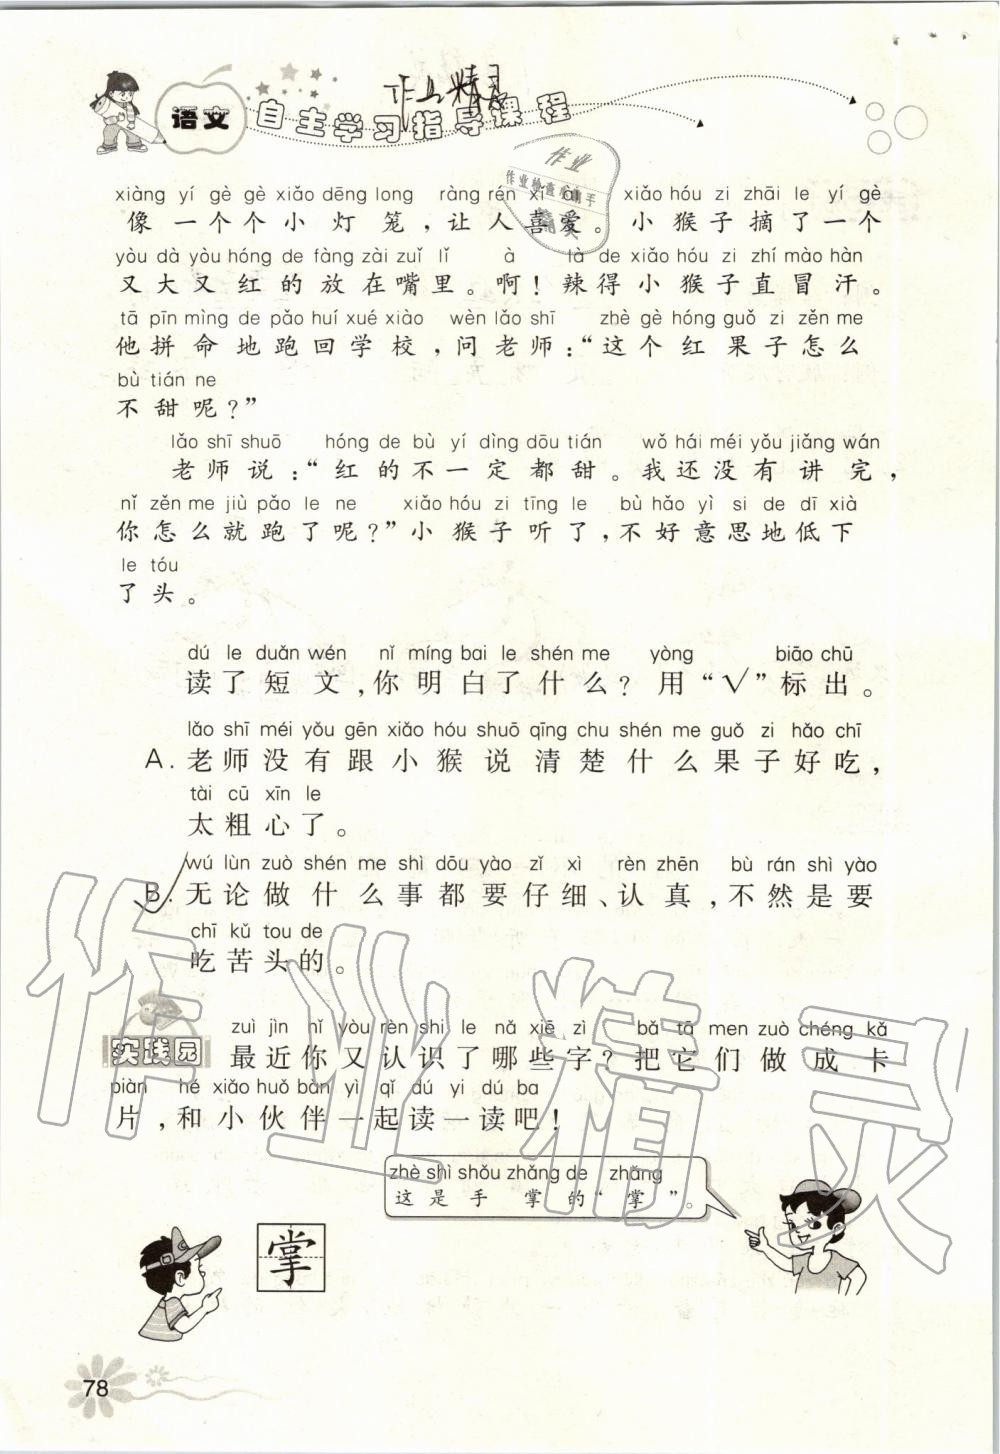 作业精灵
语文 自主学习指导课程
作业
作业检查小助手
精灵
xiàng yí gè gè xiǎo dēng long ràng rén xǐ ài xiǎo hóu zi zhāi le yí gè
像一个个小灯笼,让人喜爱。小猴子摘了一个
yòu dà yòu hóng de fàng zài zuǐ lǐ à là de xiǎo hóu zi zhí mào hàn
又大又红的放在嘴里。啊!辣得小猴子直冒汗。
tā pīn mìng de pǎo huí xué xiào wèn lǎo shī zhè gè hóng guǒ zi zěn me
他拼命地跑回学校,问老师:“这个红果子怎么
bù tián ne
不甜呢?”
lǎo shī shuō hóng de bù yí dìng dōu tián wǒ hái méi yǒu jiǎng wán
老师说:“红的不一定都甜。我还没有讲完,
nǐ zěn me jiù pǎo le ne xiǎo hóu zi tīng le bù hǎo yì si de dī xià
你怎么就跑了呢?”小猴子听了,不好意思地低下
le tóu
了头。
dú le duǎn wén nǐ míng bai le shén me yòng biāo chū
读了短文,你明白了什么?用“√”标出。
lǎo shī méi yǒu gēn xiǎo hóu shuō qīng chu shén me guǒ zi hǎo chī
A.老师没有跟小猴说清楚什么果子好吃,
tài cū xīn le
太粗心了。
wú lùn zuò shén me shì dōu yào zǐ xì rèn zhēn bù rán shì yào
B.无论做什么事都要仔细、认真,不然是要
chī kǔ tou de
吃苦头的。
zuì jìn nǐ yòu rèn shi le nǎ xiē zì bǎ tā men zuò chéng kǎ
实践园 最近你又认识了哪些字?把它们做成卡
piàn hé xiǎo huǒ bàn yì qǐ dú yi dú ba
片,和小伙伴一起读一读吧!
zhè shì shǒu zhǎng de zhǎng
这是手掌的“掌”。
掌
78
作业精灵